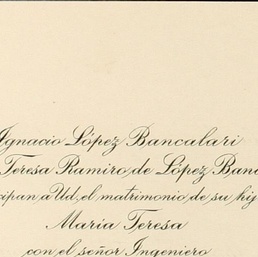 Ignacio López Bancalari
Teresa Ramiro de López Banc
cipan a Ud, el matrimonio de su hij
María Teresa
con el señor Ingeniero